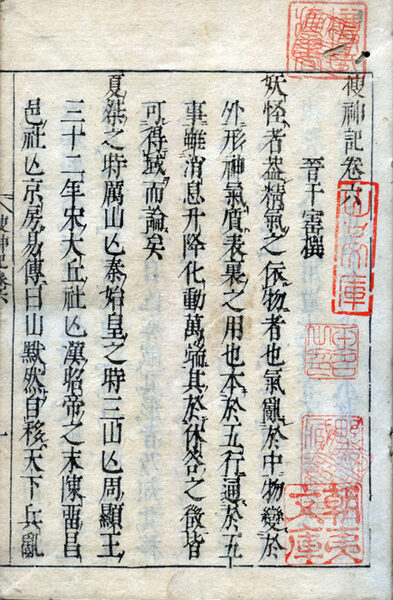 搜神記卷六
晉干寶撰
妖怪者蓋精氣之依物者也氣亂於中物變於
外形神氣質表裏之用也本於五行通於五
事雖消息升降化動萬端其於休咎之徵皆
可得域而論矣
夏桀之時厲山亾秦始皇之時二山亾周顯王
三十二年宋大丘社亾漢昭帝之末陳留昌
邑社亾京房易傳曰山默然自移天下兵亂
搜神記卷六